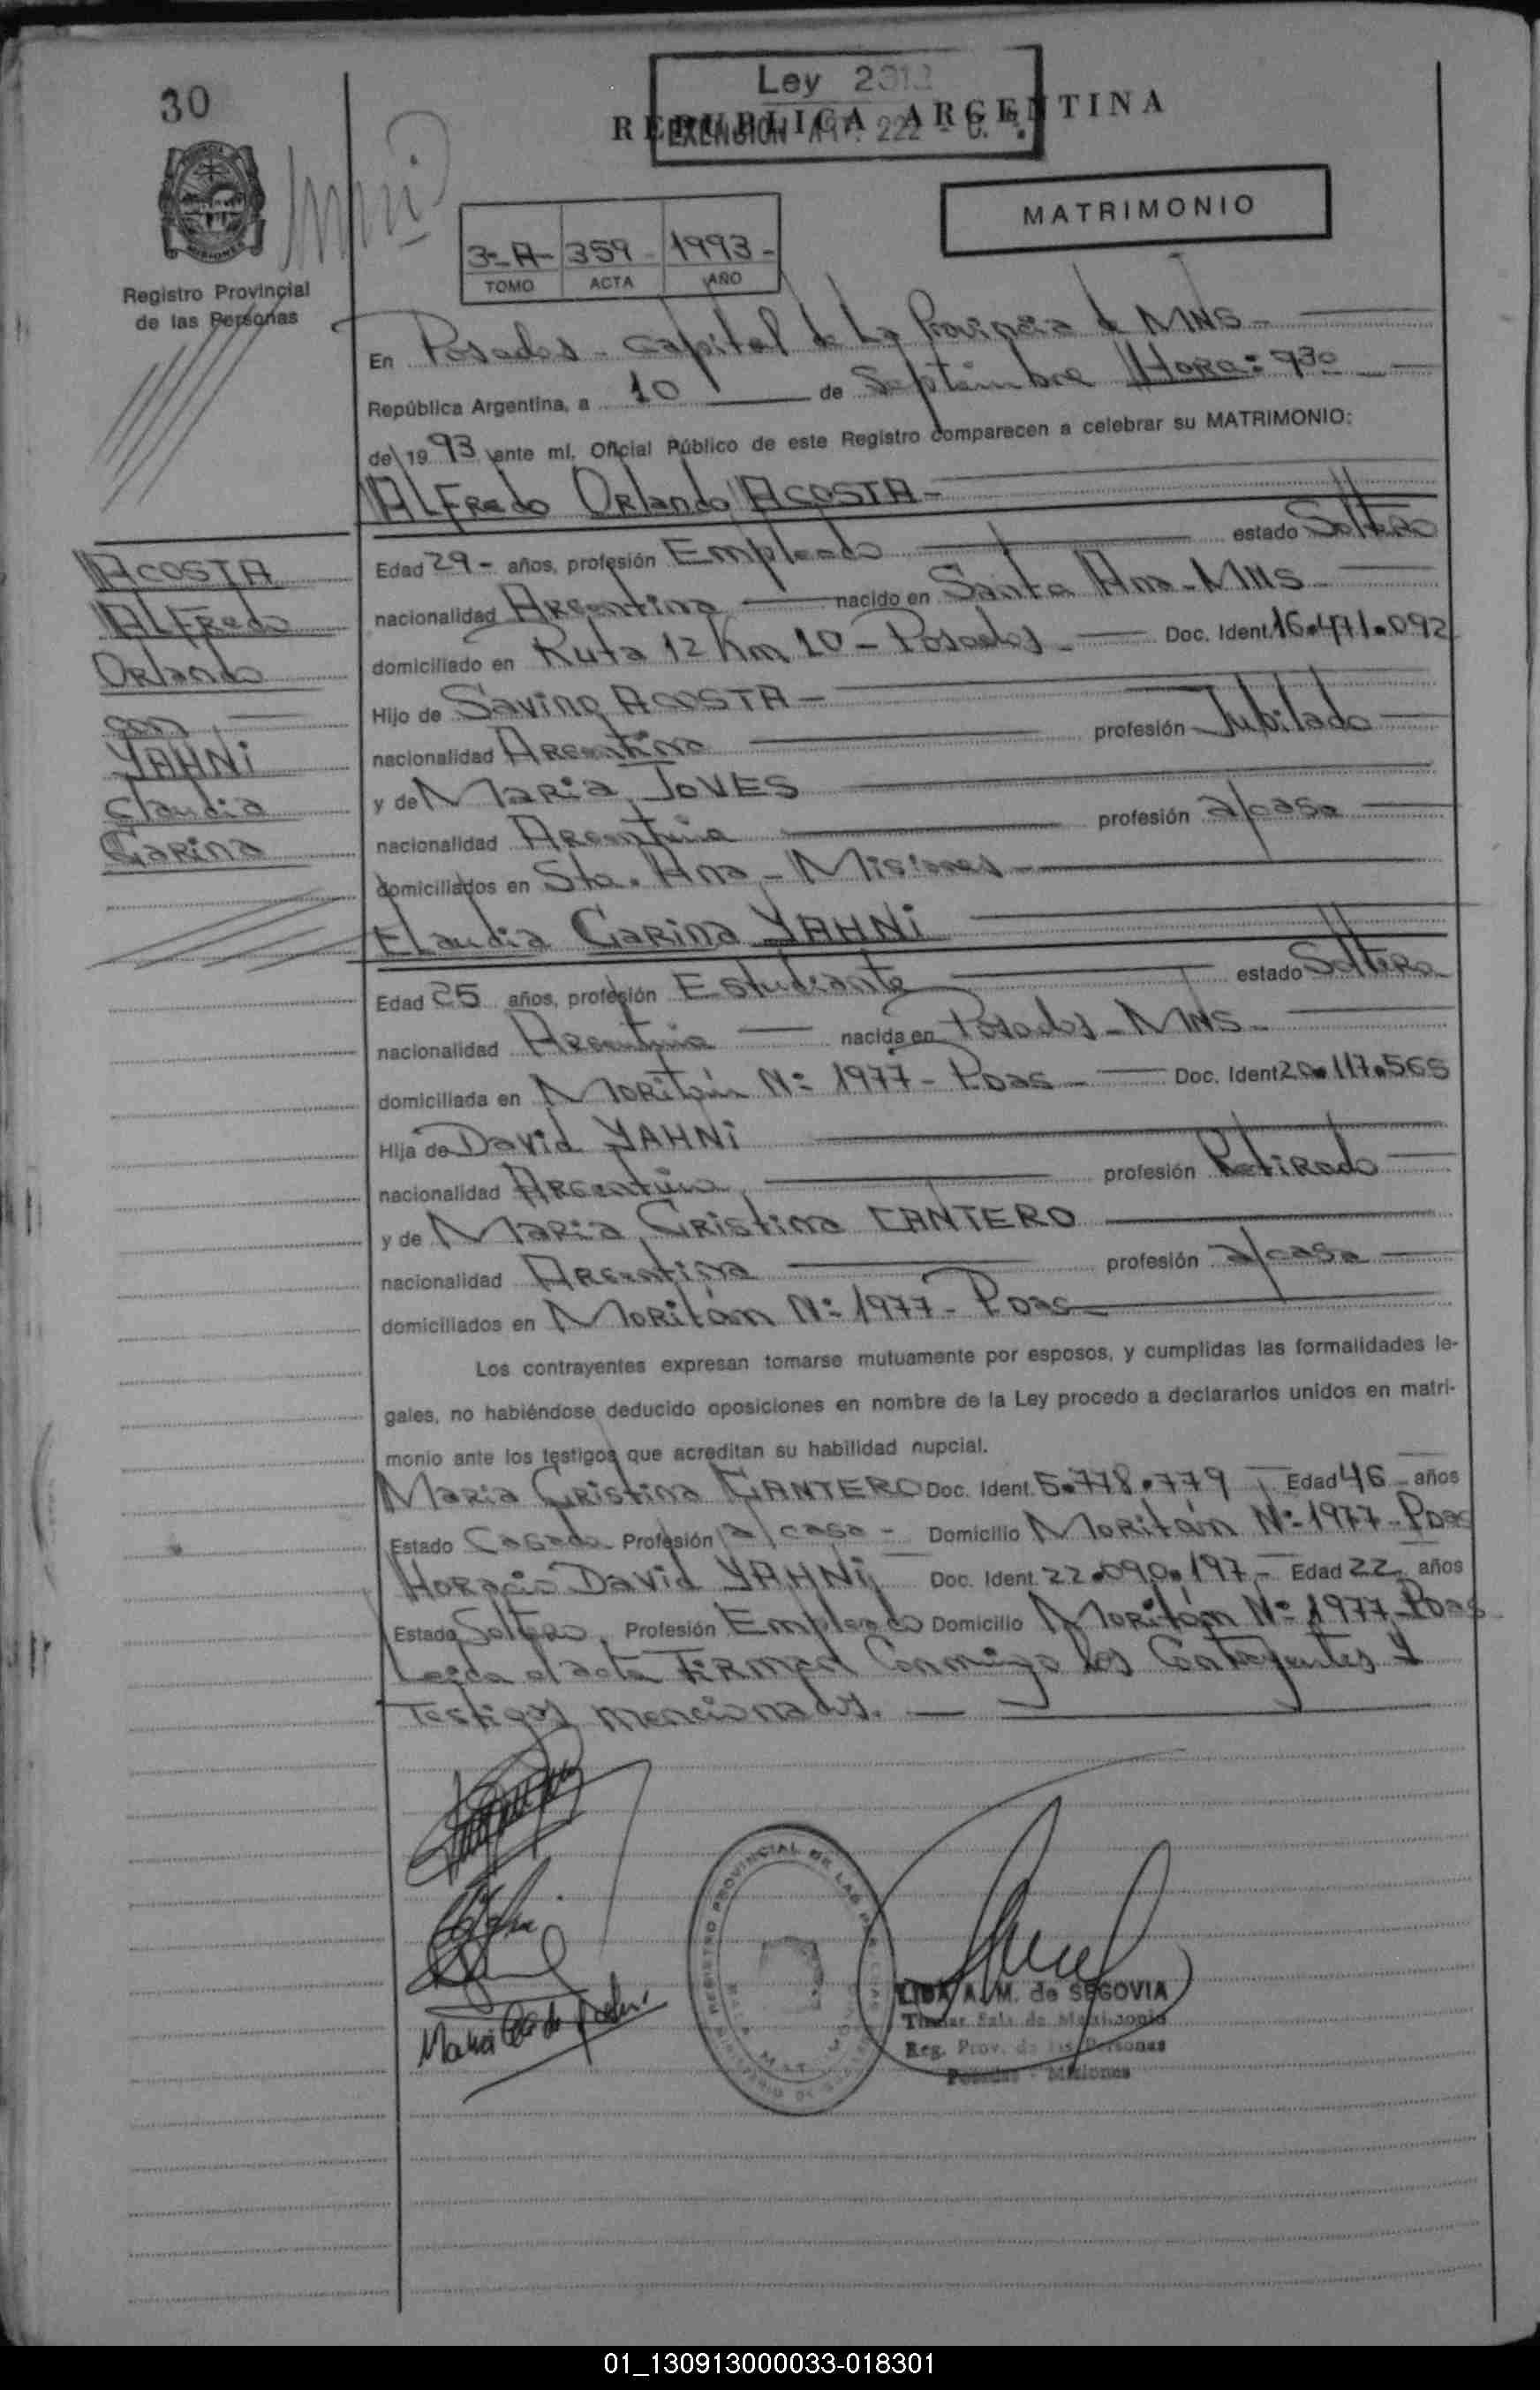 30
Ley 2312
REPUBLICA ARGENTINA
EXENSION ART. 222
MATRIMONIO
3-A- 359- 1993-
TOMO ACTA AÑO
Registro Provincial
de las Personas
En Posadas - Capital de la Provincia de MNS-
República Argentina, a 10 de Septiembre Hora: 930
de 1993 ante mi, Oficial Público de este Registro comparecen a celebrar su MATRIMONIO:
Alfredo Orlando ACOSTA-
ACOSTA
Alfredo
Orlando
con
YAHNi
Claudia
Carina
Edad 29- años, profesión Empleado estado Soltero
nacionalidad Argentina nacido en Santa Ana-MNS
domiciliado en Ruta 12 Km 10 - Posadas - Doc. Ident. 16.471.092
Hijo de Savino ACOSTA -
nacionalidad Argentino profesión Jubilado
y de Maria JOVES
nacionalidad Argentina profesión a/casa
domiciliados en Sta. Ana - Misiones
Claudia Carina YAHNi
Edad 25 años, profesión Estudiante estado Soltera
nacionalidad Argentina nacida en Posadas-MNS-
domiciliada en Moritán Nº 1977 - Pdas - Doc. Ident 20.117.565
Hija de David YAHNi
nacionalidad Argentino profesión Retirado
y de Maria Cristina CANTERO
nacionalidad Argentina profesión a/casa
domiciliados en Moritán Nº 1977 - Pdas
Los contrayentes expresan tomarse mutuamente por esposos, y cumplidas las formalidades le-
gales, no habiéndose deducido oposiciones en nombre de la Ley procedo a declararlos unidos en matri-
monio ante los testigos que acreditan su habilidad nupcial.
Maria Cristina CANTERO Doc. Ident. 5.778.779 Edad 46 años
Estado Casada Profesión a/casa - Domicilio Moritán Nº 1977 - Pdas
Horacio David YAHNi Doc. Ident. 22.090.197 - Edad 22 años
Estado Soltero, Profesión Empleado Domicilio Moritán Nº 1977 - Pdas
Leida el acta Firman Conmigo los Contrayentes y
Testigos mencionados.
REGISTRO PROVINCIAL DE LAS PERSONAS
A. M. de SEGOVIA
Titular Sala de Matrimonio
Reg. Prov. de las Personas
Posadas - Misiones
01_130913000033-018301